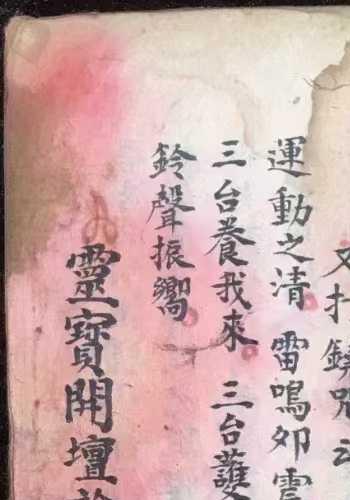 又
運動之清 雷鳴夘
三台養我來 三台護
鈴聲振嚮
靈寶開壇